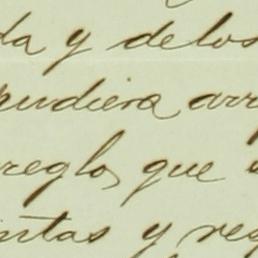 da y de los
pudiera arr
reglo, que
ntas y res